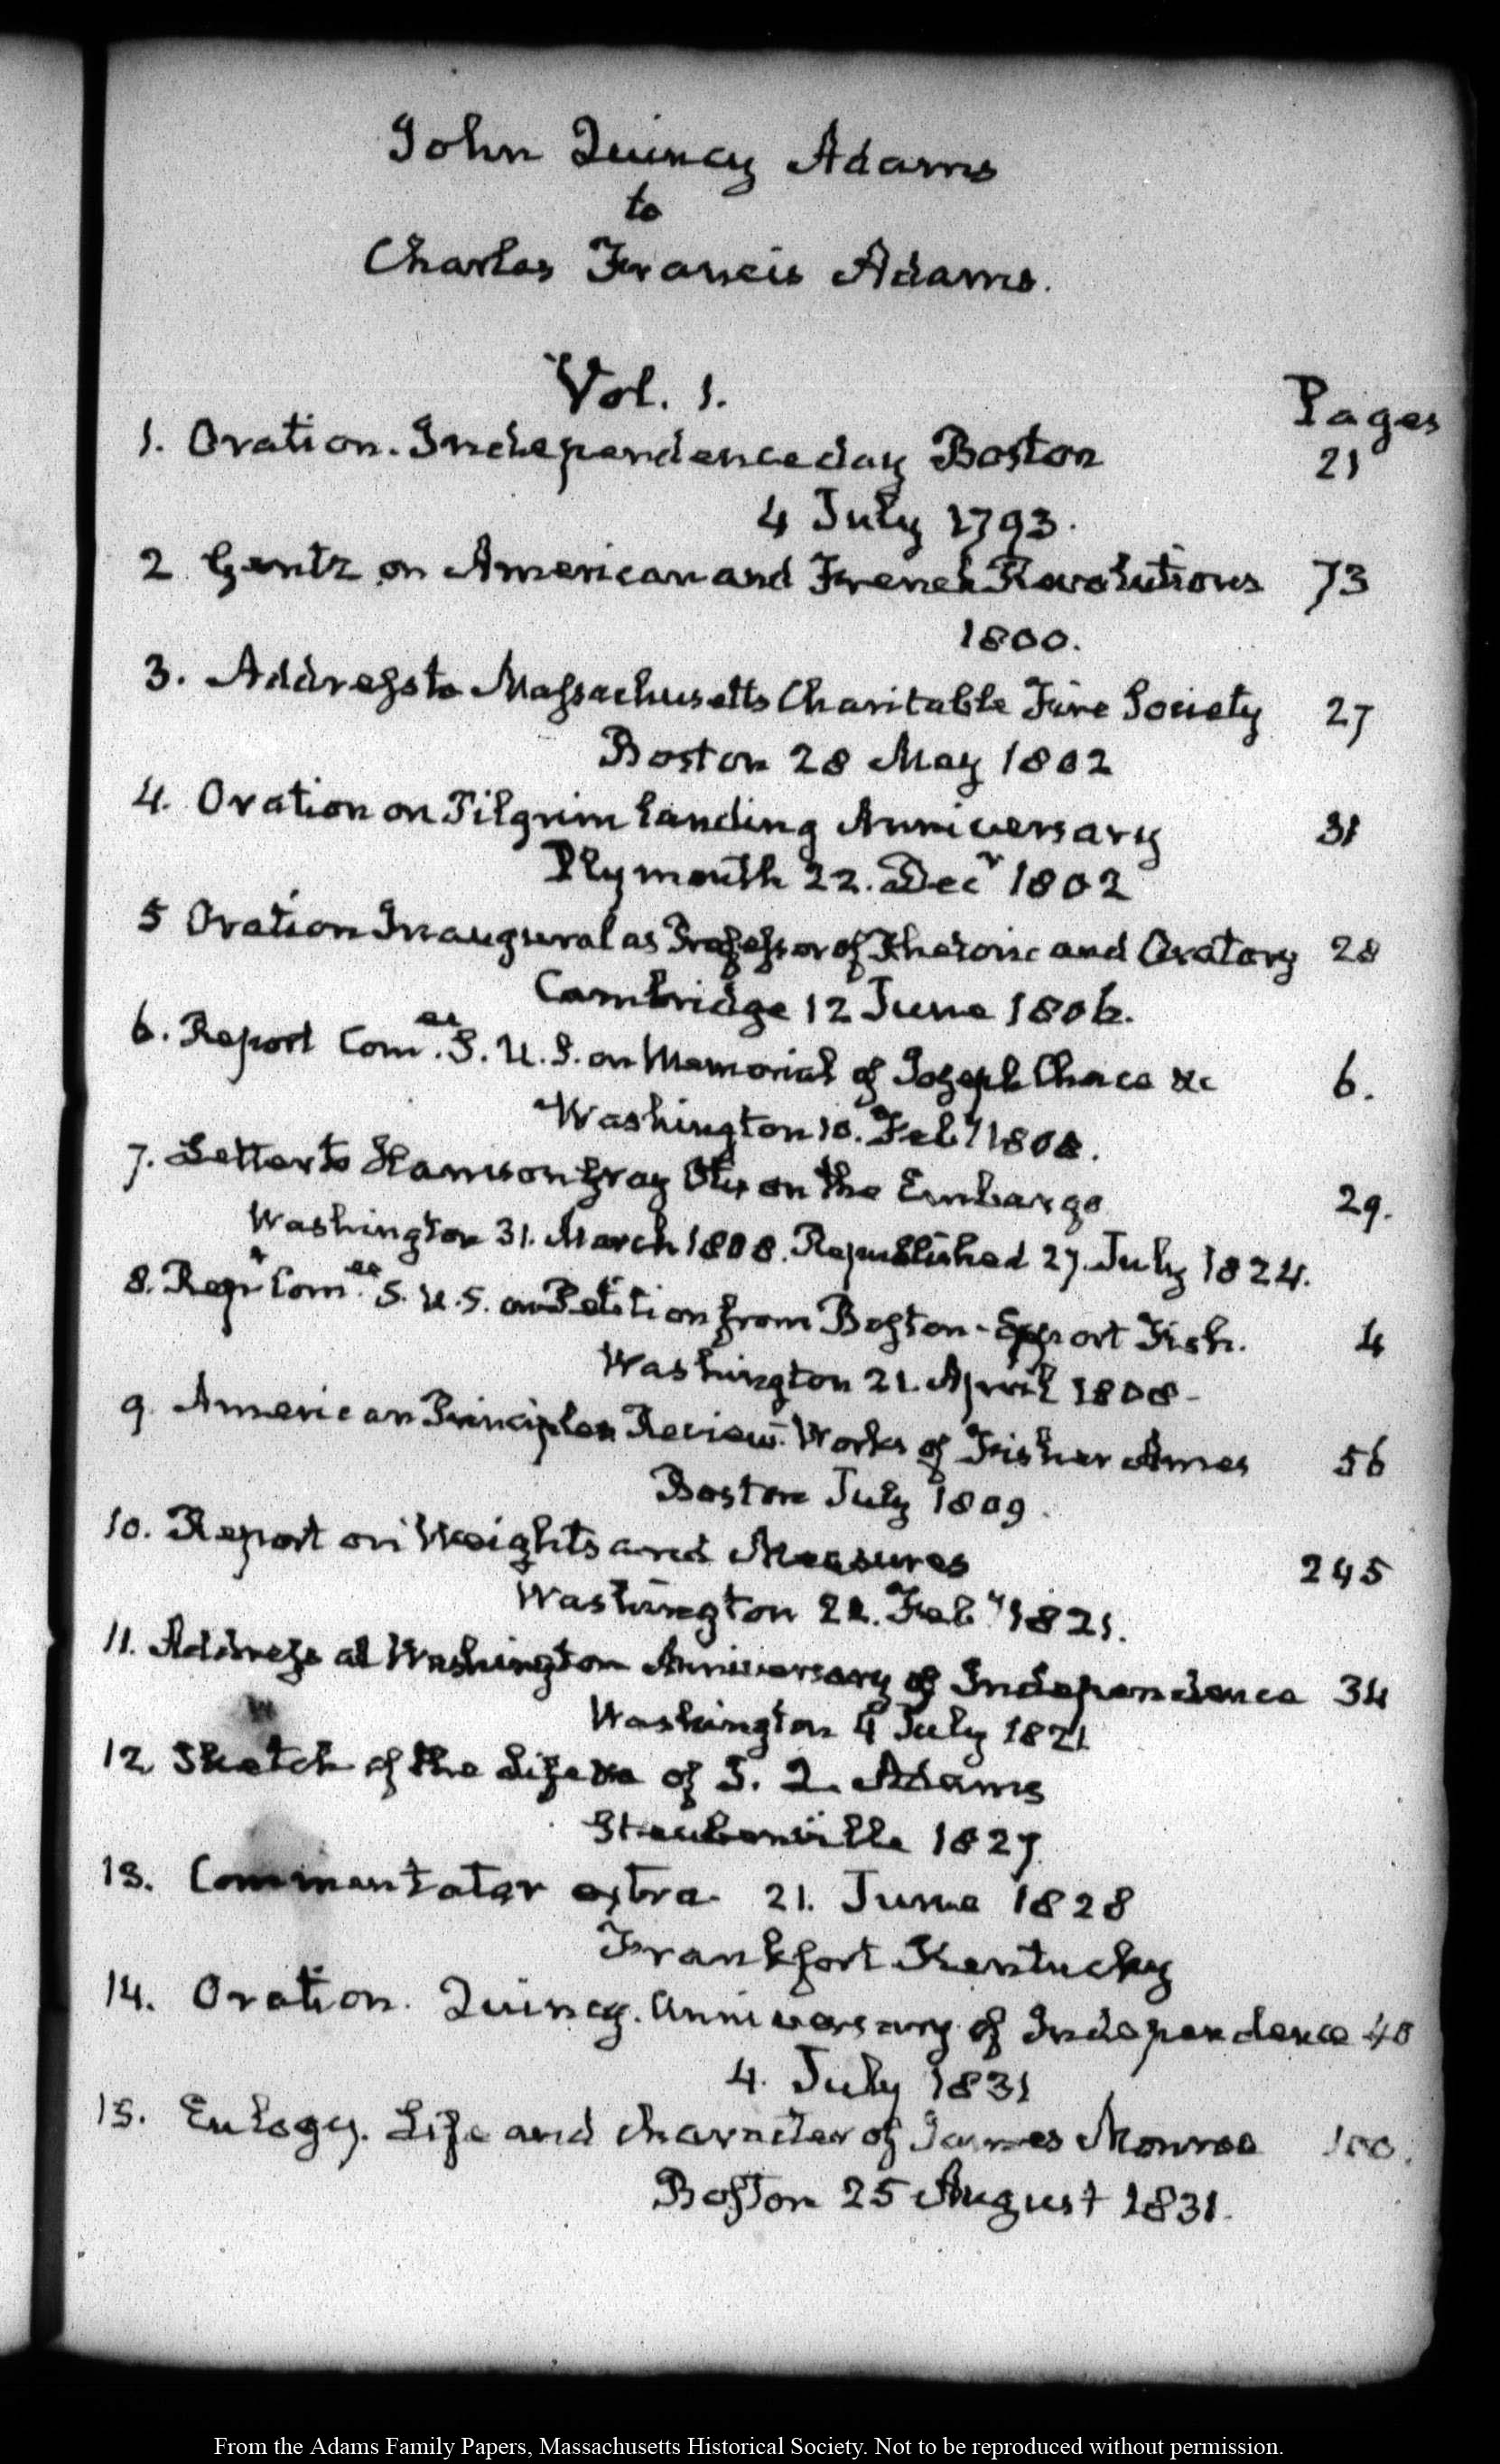 John Quincy Adams
to
Charles Francis Adams.
Vol. 1.
Pages
1. Oration. Independence day Boston 21
4 July 1793.
2 Gentz on American and French Revolutions 73
1800.
3. Address to Massachusetts Charitable Fire Society 27
Boston 28 May 1802
4. Oration on Pilgrim landing Anniversary 31
Plymouth 22. Decr 1802
5 Oration Inaugural as Professor of Rhetoric and Oratory 28
Cambridge 12 June 1806.
6. Report Com.ee S. U. S. on Memorial of Joseph Chace &c 6.
Washington 10. Feby 1808.
7. Letter to Harrison Gray Otis on the Embargo 29.
Washington 31. March 1808. Republished 27. July 1824.
8. Rept Com.ee S. U. S. on Petition from Boston - Export Fish. 4
Washington 21. April 1808-
9. American Principles Review. Works of Fisher Ames 56
Boston July 1809.
10. Report on Weights and Measures 245
Washington 22. Feby 1821.
11. Address at Washington Anniversary of Independence 34
Washington 4 July 1821
12 Sketch of the Life of J. Q. Adams
Steubenville 1827.
13. Commentator extra. 21. June 1828
Frankfort Kentucky
14. Oration. Quincy. Anniversary of Independence 40
4. July 1831
15. Eulogy. Life and character of James Monroe 100.
Boston 25 August 1831.
From the Adams Family Papers, Massachusetts Historical Society. Not to be reproduced without permission.